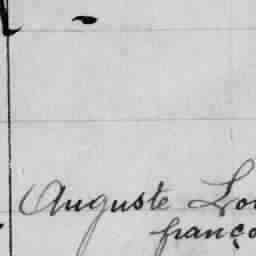 Auguste Lou
franço